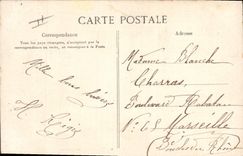 CARTE POSTALE
Correspondance
Tous les pays étrangers, n'acceptent pas la
correspondance au recto, se renseigner à la Poste
Adresse
Mille bons baisers
Madame Blanche
Charras
Boulevard
N° 65 Marseille
Bouches du Rhône